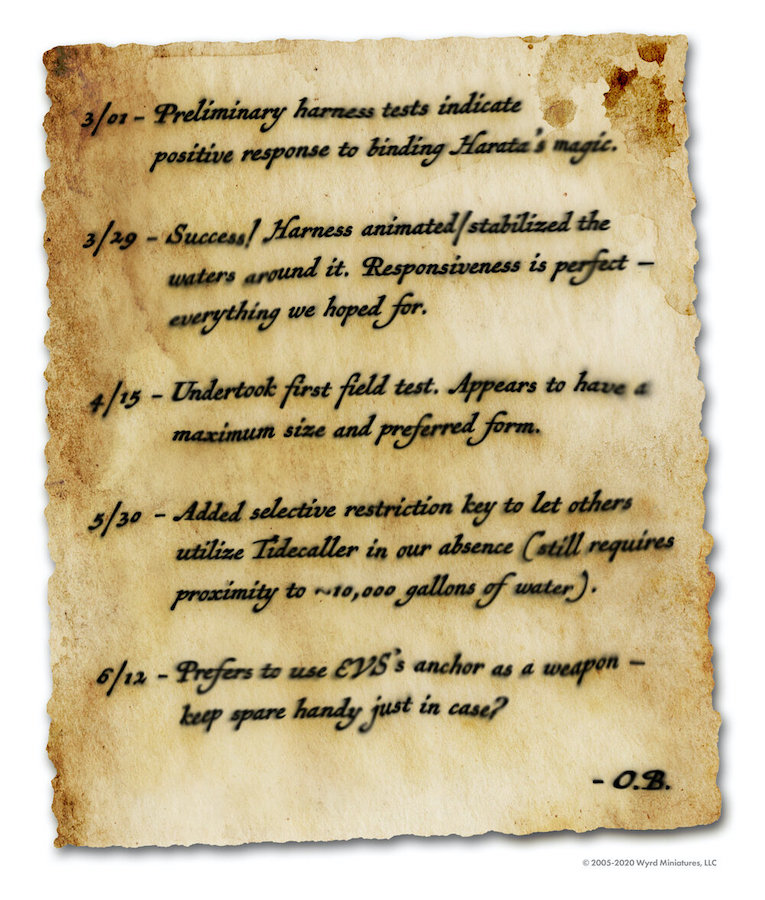 3/01 - Preliminary harness tests indicate
positive response to binding Harata's magic.
3/29 - Success! Harness animated/stabilized the
waters around it. Responsiveness is perfect –
everything we hoped for.
4/15 - Undertook first field test. Appears to have a
maximum size and preferred form.
5/30 - Added selective restriction key to let others
utilize Tidecaller in our absence (still requires
proximity to ~10,000 gallons of water).
6/12 - Prefers to use EVS's anchor as a weapon –
keep spare handy just in case?
- O.B.
© 2005-2020 Wyrd Miniatures, LLC